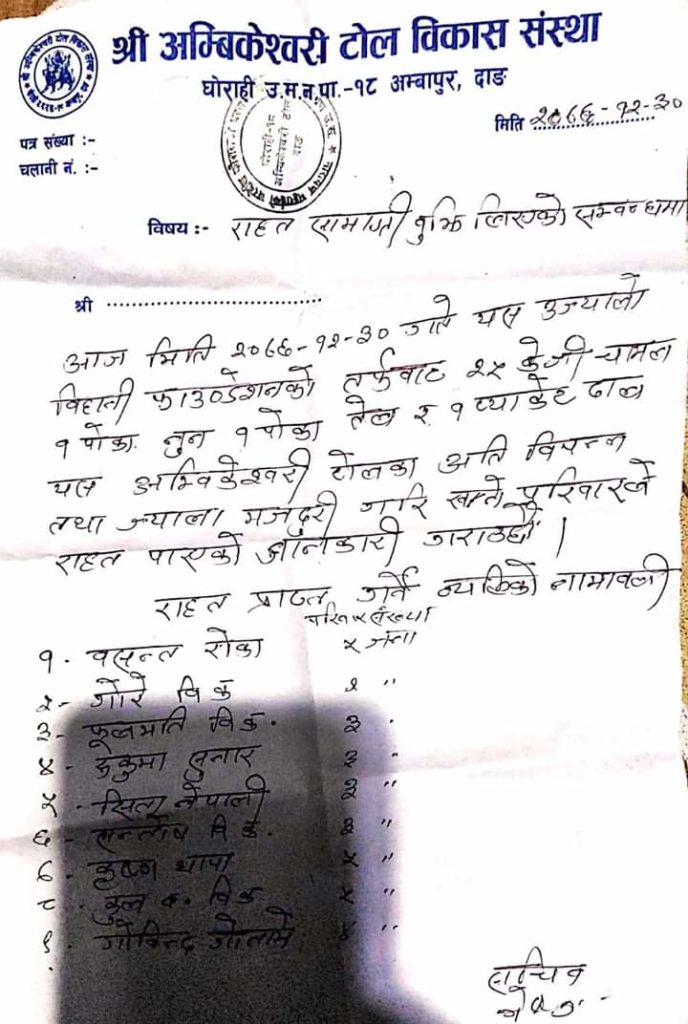 श्री अम्बिकेश्वरी टोल विकास संस्था
घोराही उ.म.न.पा.-१८ अम्बापुर, दाङ
मिति २०७६-१२-३०
पत्र संख्या :-
चलानी नं. :-
घोराही-१८
अम्बिकेश्वरी टोल
दाङ
विषय :- राहत सामाग्री बुझि लिएको सम्बन्धमा
श्री ........................................
आज मिति २०७६-१२-३० गते यस उज्यालो
विहानी फाउण्डेशनको तर्फबाट २५ केजी चामल
१ पोका नुन १ पोका तेल र १ प्याकेट दाल
यस अम्विकेश्वरी टोलका अति विपन्न
तथा ज्याला मजदुरी गरि खाने परिवारले
राहत पाएको जानकारी गराउछौं ।
राहत प्राप्त गर्ने व्यक्तिको नामावली
परिवार संख्या
१. वसन्त रोका ५ जना
२- गोरे वि क २ "
३- फूलमति वि क. ३ "
४- सुनार ३ "
५- सिता नेपाली ३ "
६- सन्तोष वि क. ३ "
७- कृष्ण थापा ५ "
८- कुल ब. वि क ५ "
९. गोविन्द गौतम ४ "
सचिव